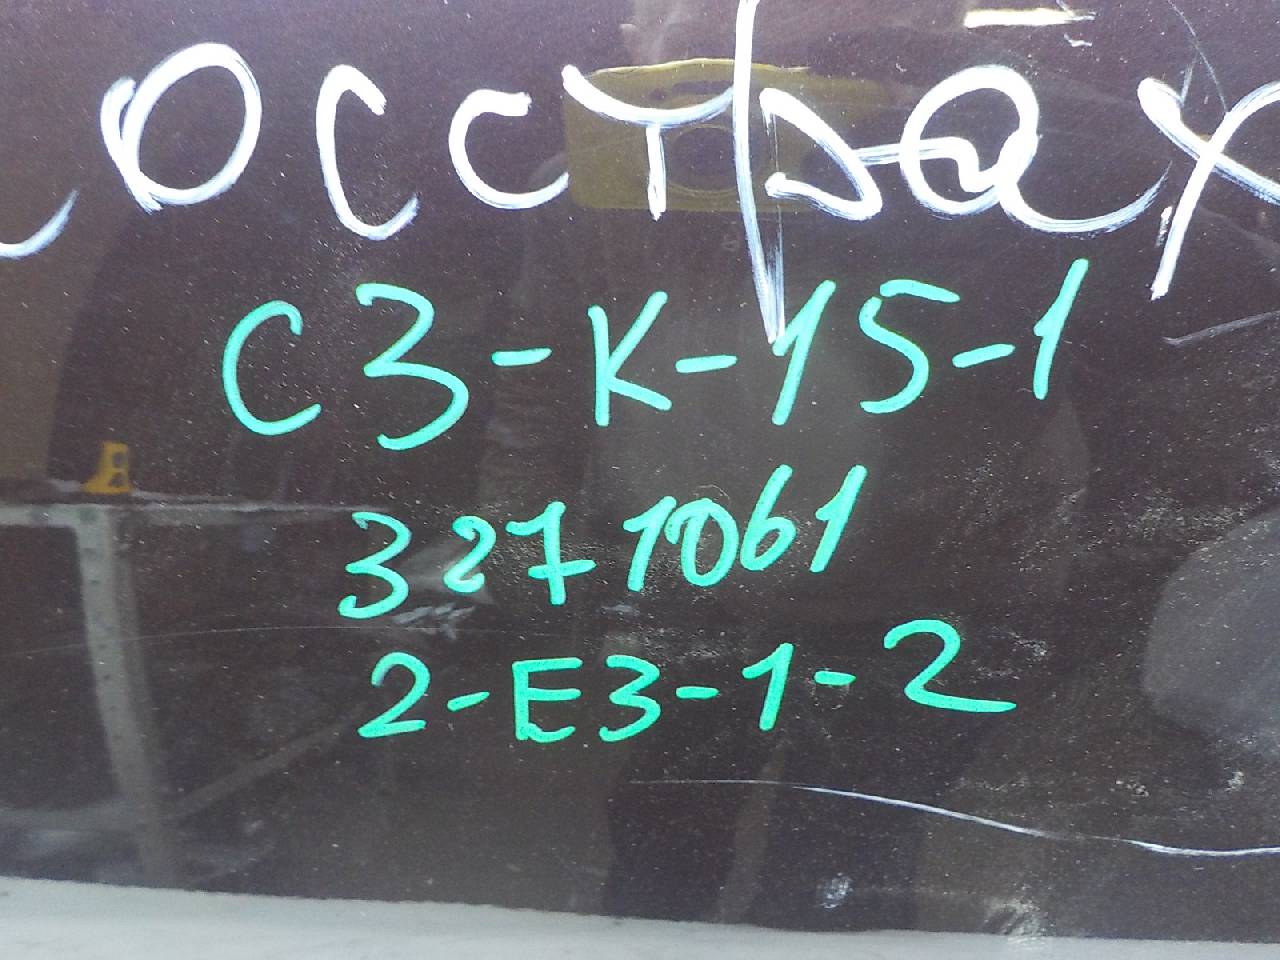 осстрах
С3-К-15-1
3271061
2-Е3-1-2